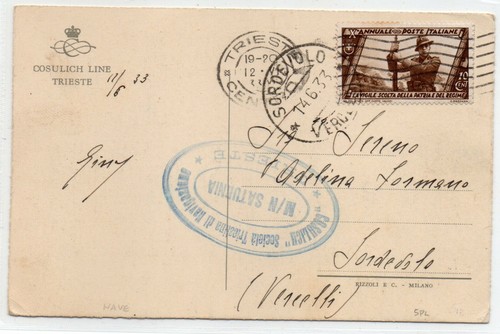 COSULICH LINE
TRIESTE
12/6 33
TRIESTE
19-20
12
CENTRO
SORDEVOLO
14.6.33
VERCELLI
X ANNUALE POSTE ITALIANE
VIGILE SCOLTA DELLA PATRIA E DEL REGIME
Giny
Sereno
Adelina Lormano
"COSULICH" Società Triestina di Navigazione
M/N SATURNIA
TRIESTE
Sordevolo
(Vercelli)
RIZZOLI E C. - MILANO
NAVE
SPL